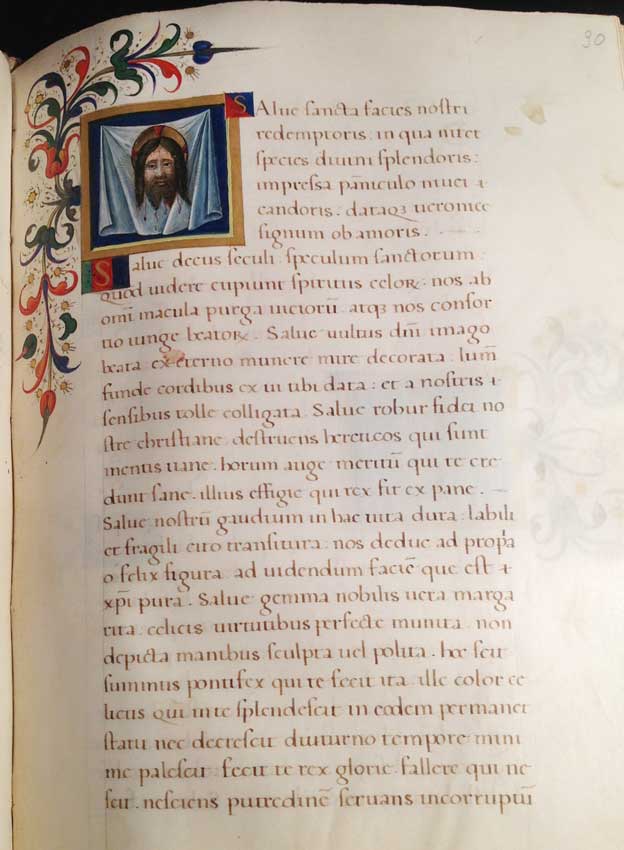 90
SAlue sancta facies nostri
redemptoris: in qua nitet
species diuini splendoris:
impressa pãniculo niuei ⁊
candoris. dataqȝ ueronice
signum ob amoris.
Salue decus seculi speculum sanctorum
quod uidere cupiunt spiritus celoꝝ: nos ab
omĩ macula purga uicioꝝ atqȝ nos consor
tio iunge beatoꝝ. Salue uultus dñi imago
beata ex eterno munere mire decorata lum̃
funde cordibus ex ui tibi data: et a nostris ⁊
sensibus tolle colligata. Salue robur fidei no
stre christiane destruens hereticos qui sunt
mentis uane. horum auge meritũ qui te cre
dunt sane. illius effigie qui rex fit ex pane.
Salue nostrũ gaudium in hac uita dura: labili
et fragili cito transitura: nos deduc ad prop̃a
o felix figura ad uidendum faciẽ que est ⁊
xp̃i pura. Salue gemma nobilis uera marga
rita celicis uirtutibus perfecte munita non
depicta manibus sculpta uel polita. hoc scit
summus pontifex qui te fecit ita ille color ce
licus qui in te splendescit in eodem permanet
statu nec decrescit diuturno tempore mini
me palescit: fecit te rex glorie fallere qui ne
scit. nesciens putredinẽ seruans incorruptũ